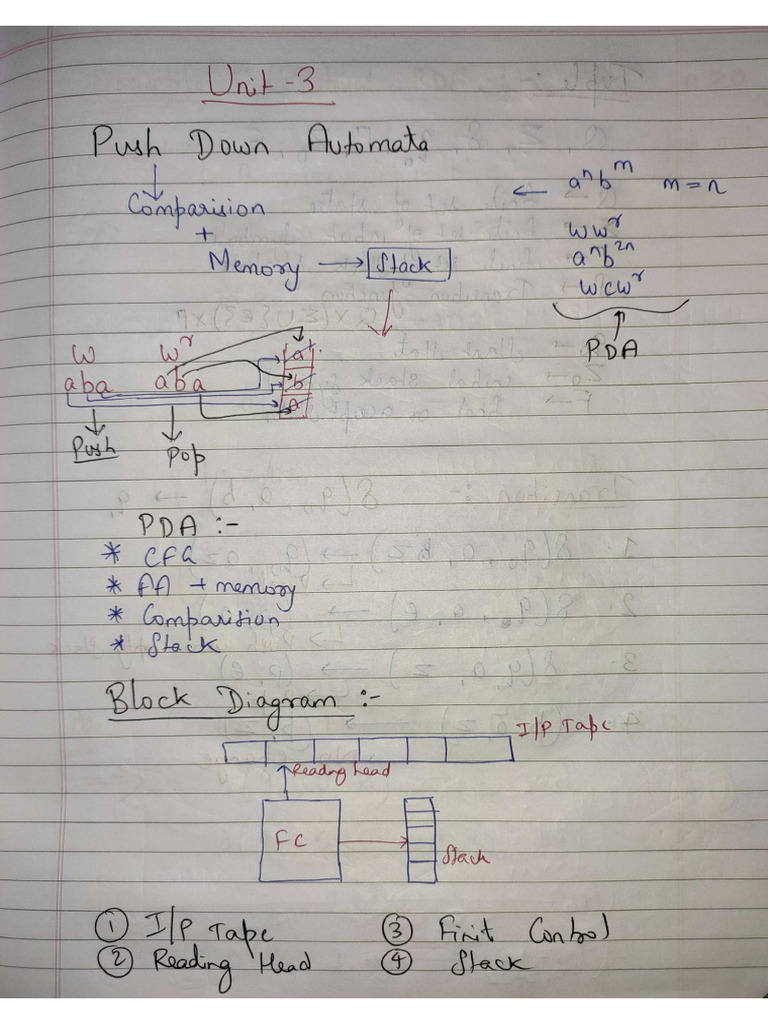 Unit-3
Push Down Automata
Comparision
+
Memory → Stack
← aⁿbᵐ m=n
wwʳ
aⁿb²ⁿ
wcwʳ
PDA
w wʳ
aba aba
a
b
a
Push
Pop
PDA :-
* CFG
* FA + memory
* Comparision
* Stack
Block Diagram :-
I/P Tape
Reading head
FC
Stack
① I/P Tape ③ Finit Control
② Reading Head ④ Stack